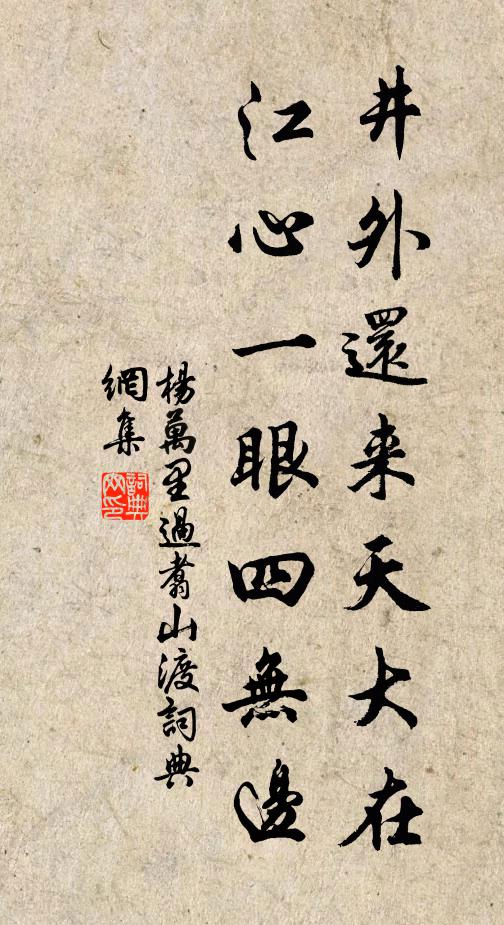 井外還来天大在
江心一眼四無邊
楊萬里過翥山渡詞典
網集
詞典
网印